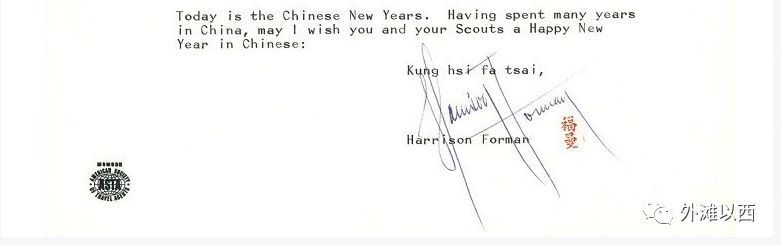 Today is the Chinese New Years. Having spent many years
in China, may I wish you and your Scouts a Happy New
Year in Chinese:
Kung hsi fa tsai,
Harrison Forman
Harrison Forman
福曼
MEMBER
AMERICAN SOCIETY
ASTA
OF TRAVEL AGENTS
外滩以西